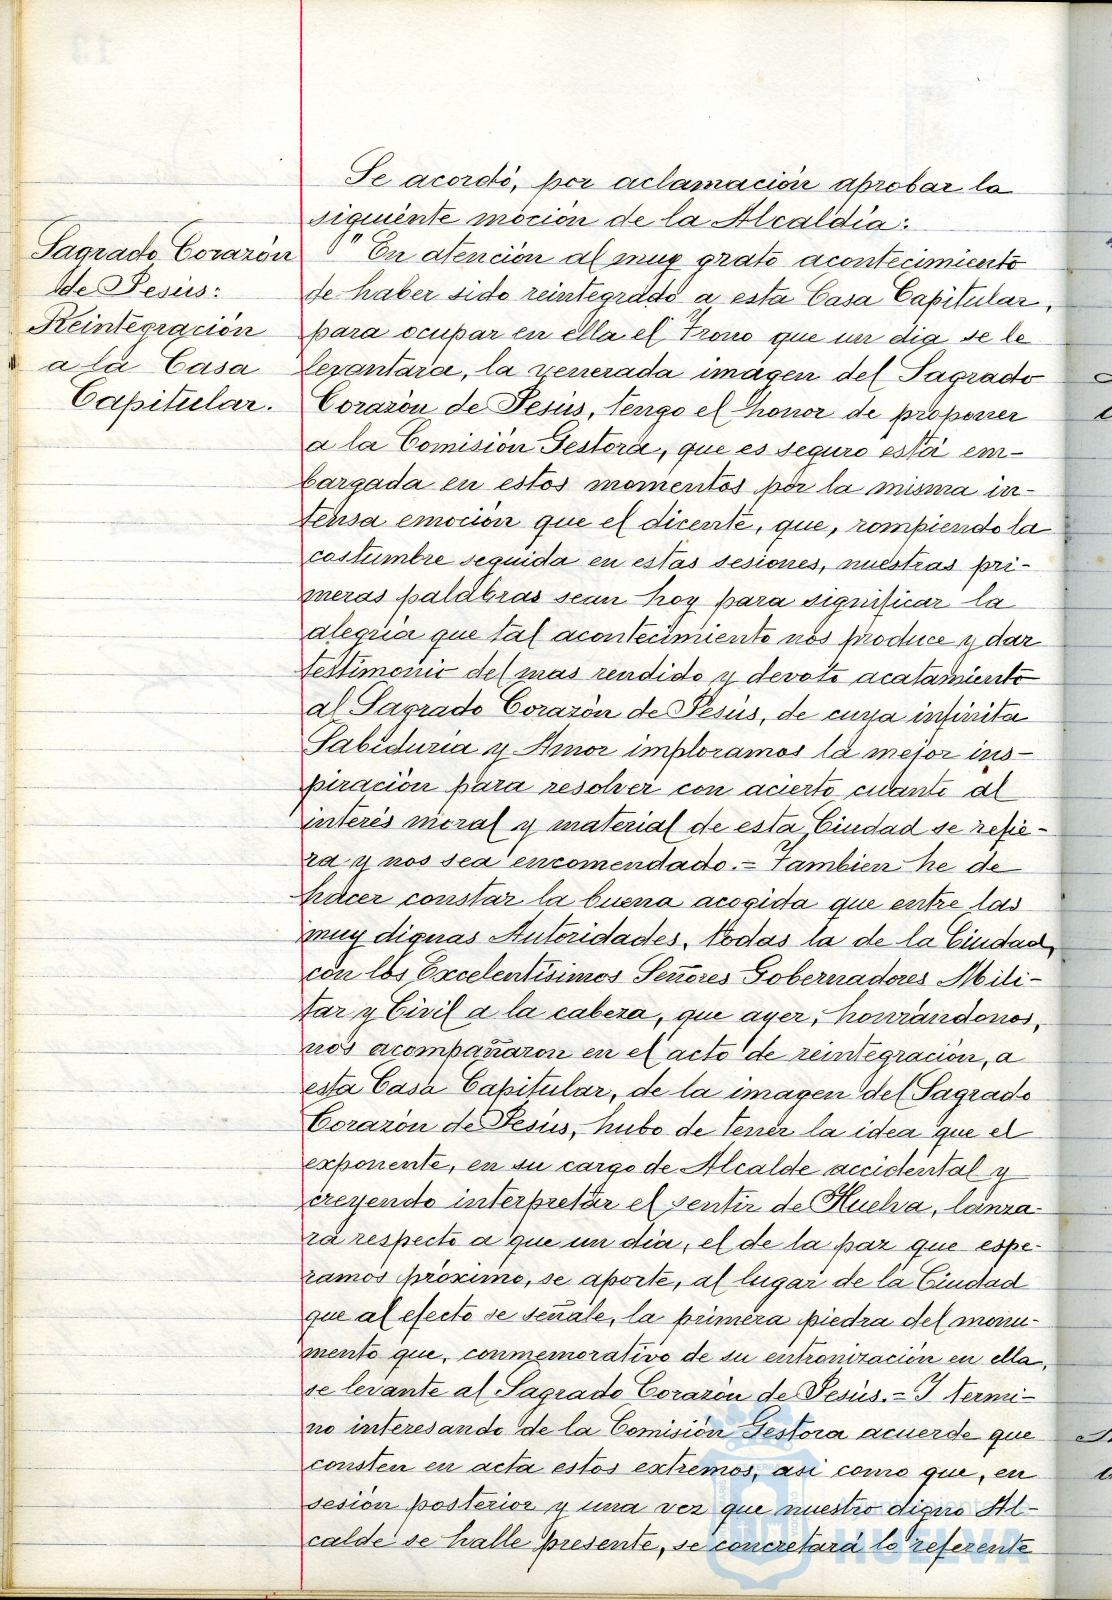 Se acordó, por aclamación aprobar la
siguiente moción de la Alcaldía:
Sagrado Corazón
de Jesús:
Reintegración
a la Casa
Capitular.
"En atención al muy grato acontecimiento
de haber sido reintegrado a esta Casa Capitular,
para ocupar en ella el Trono que un dia se le
levantara, la venerada imágen del Sagrado
Corazón de Jesús, tengo el honor de proponer
a la Comisión Gestora, que es seguro está em-
bargada en estos momentos por la misma in-
tensa emoción que el dicente, que, rompiendo la
costumbre seguida en estas sesiones, nuestras pri-
meras palabras sean hoy para significar la
alegria que tal acontecimiento nos produce y dar
testimonio del mas rendido y devoto acatamiento
al Sagrado Corazón de Jesús, de cuya infinita
Sabiduria y Amor imploramos la mejor ins-
piración para resolver con acierto cuanto al
interés moral y material de esta Ciudad se refie-
ra y nos sea encomendado.= Tambien he de
hacer constar la buena acogida que entre las
muy dignas Autoridades, todas la de la Ciudad,
con los Excelentísimos Señores Gobernadores Mili-
tar y Civil a la cabeza, que ayer, honrándonos,
nos acompañaron en el acto de reintegración, a
esta Casa Capitular, de la imagen del Sagrado
Corazón de Jesús, hubo de tener la idea que el
exponente, en su cargo de Alcalde accidental y
creyendo interpretar el sentir de Huelva, lanza-
ra respecto a que un dia, el de la paz que espe-
ramos próximo, se aporte, al lugar de la Ciudad
que al efecto se señale, la primera piedra del monu-
mento que, conmemorativo de su entronización en ella,
se levante al Sagrado Corazón de Jesús.= Y termi-
no interesando de la Comisión Gestora acuerde que
consten en acta estos extremos, asi como que, en
sesión posterior y una vez que nuestro digno Al-
calde se halle presente, se concretará lo referente
HUELVA